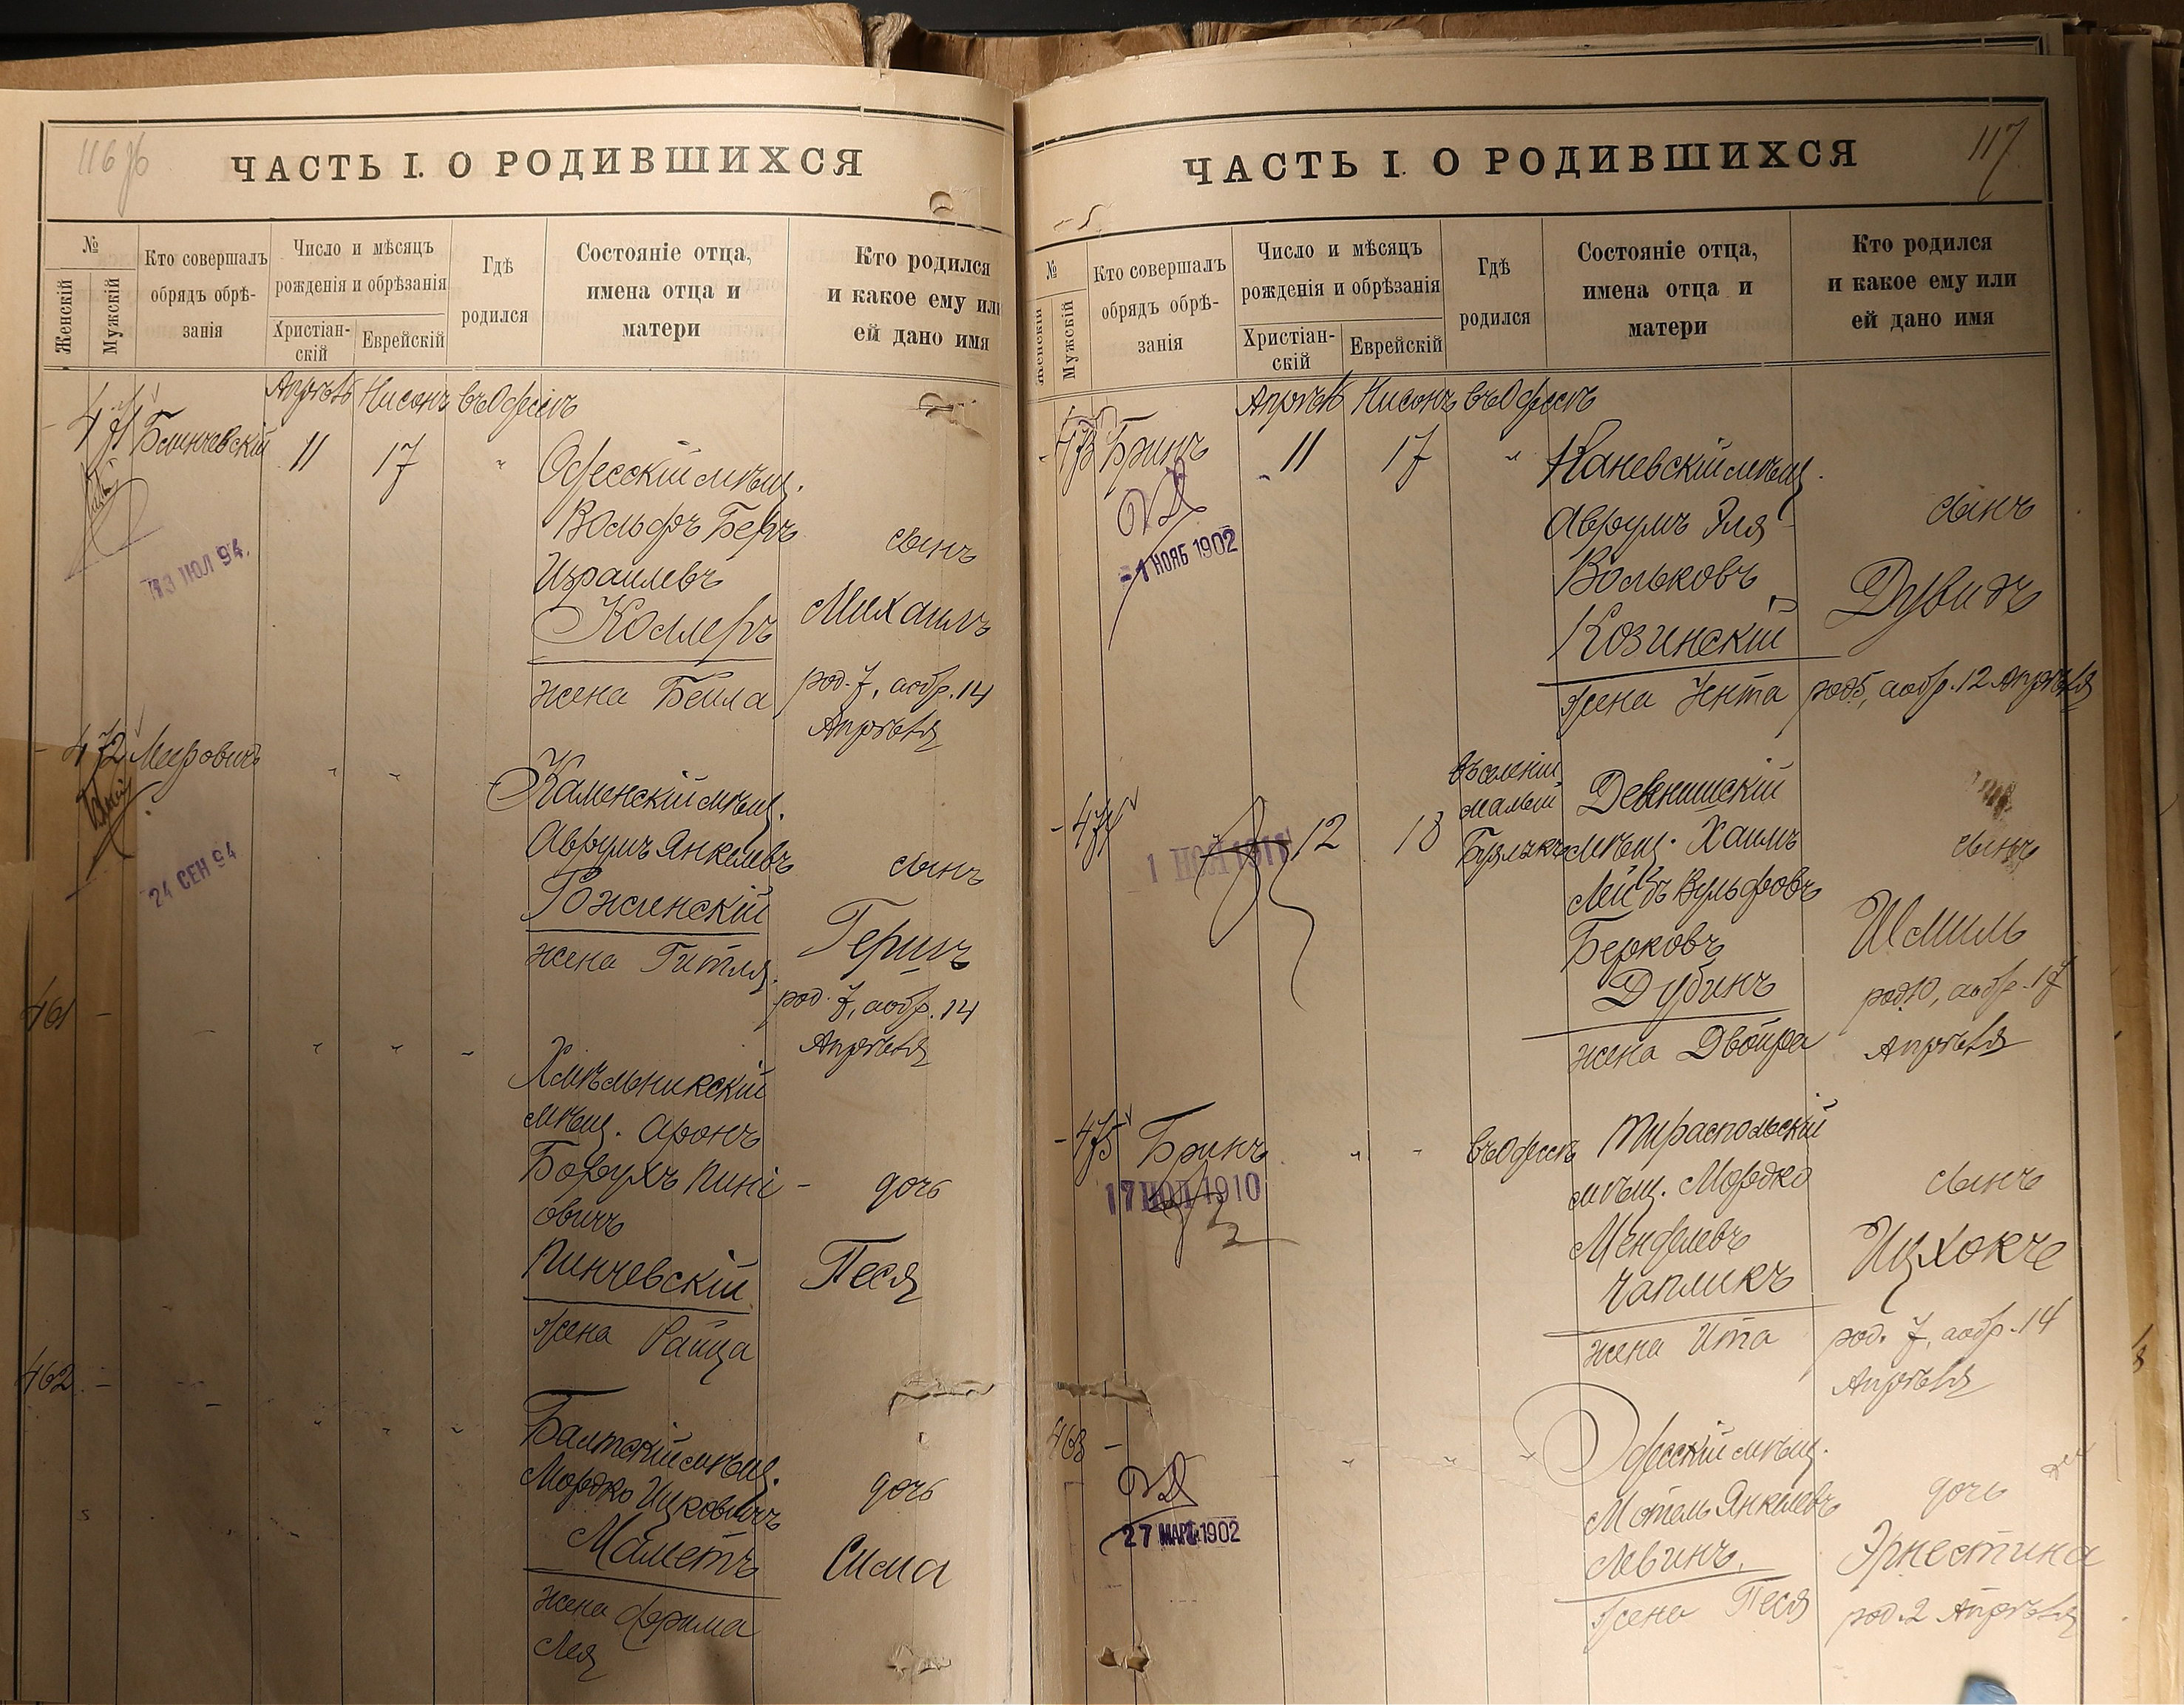 116 об
ЧАСТЬ I. О РОДИВШИХСЯ
№
Женскій
Мужскій
Кто совершалъ
обрядъ обрѣ-
занія
Число и мѣсяцъ
рожденія и обрѣзанія
Христіан-
скій
Еврейскій
Гдѣ
родился
Состояніе отца,
имена отца и
матери
Кто родился
и какое ему или
ей дано имя
Апрѣль Нисонъ въ Одессѣ
471
11 17 "
Одесскій мѣщ.
Вольфъ Беръ
Израилевъ
Коллеръ
жена Бейла
сынъ
Михаилъ
род. 7, а обр. 14
Апрѣля
13 ІЮЛ 94.
472 Мееровичъ " "
24 СЕН 94
Каменскій мѣщ.
Аврумъ Янкелевъ
Рожненскій
жена Гитля
сынъ
Гершъ
род. 7, а обр. 14
Апрѣля
461 - - " " -
Хмѣльникскій
мѣщ. Аронъ
Борухъ Пині-
овичъ
Пинчевскій
жена Райца
дочь
Песя
462. - - " " "
Балтскій мѣщ.
Мордко Ицковичъ
Маметъ
жена Фрима
Лея
дочь
Сима
117
ЧАСТЬ I. О РОДИВШИХСЯ
№
Женскій
Мужскій
Кто совершалъ
обрядъ обрѣ-
занія
Число и мѣсяцъ
рожденія и обрѣзанія
Христіан-
скій
Еврейскій
Гдѣ
родился
Состояніе отца,
имена отца и
матери
Кто родился
и какое ему или
ей дано имя
Апрѣль Нисонъ въ Одессѣ
473 Бринъ 11 17 "
-1 НОЯБ 1902
Каневскій мѣщ.
Аврумъ Эля
Вольковъ
Козинскій
жена Ента
сынъ
Дувидъ
род 5, а обр. 12 Апрѣля
474 12 18
въ селеніи
малый
Буялыкъ
Девенишскій
мѣщ. Хаимъ
Лейбъ Вульфовъ
Берковъ
Дубинъ
жена Двойра
сынъ
Шмиль
род 10, а обр. 17
Апрѣля
475 Бринъ " - въ Одессѣ
17 1910
Тираспольскій
мѣщ. Мордко
Менделевъ
Чапликъ
жена Ита
сынъ
Ицхокче
род. 7, а обр. 14
Апрѣля
463 - " " "
27 МАР 1902
Одесскій мѣщ.
Мотель Янкелевъ
Левинъ.
жена Песя
дочь
Эрнестина
род. 2 Апрѣля